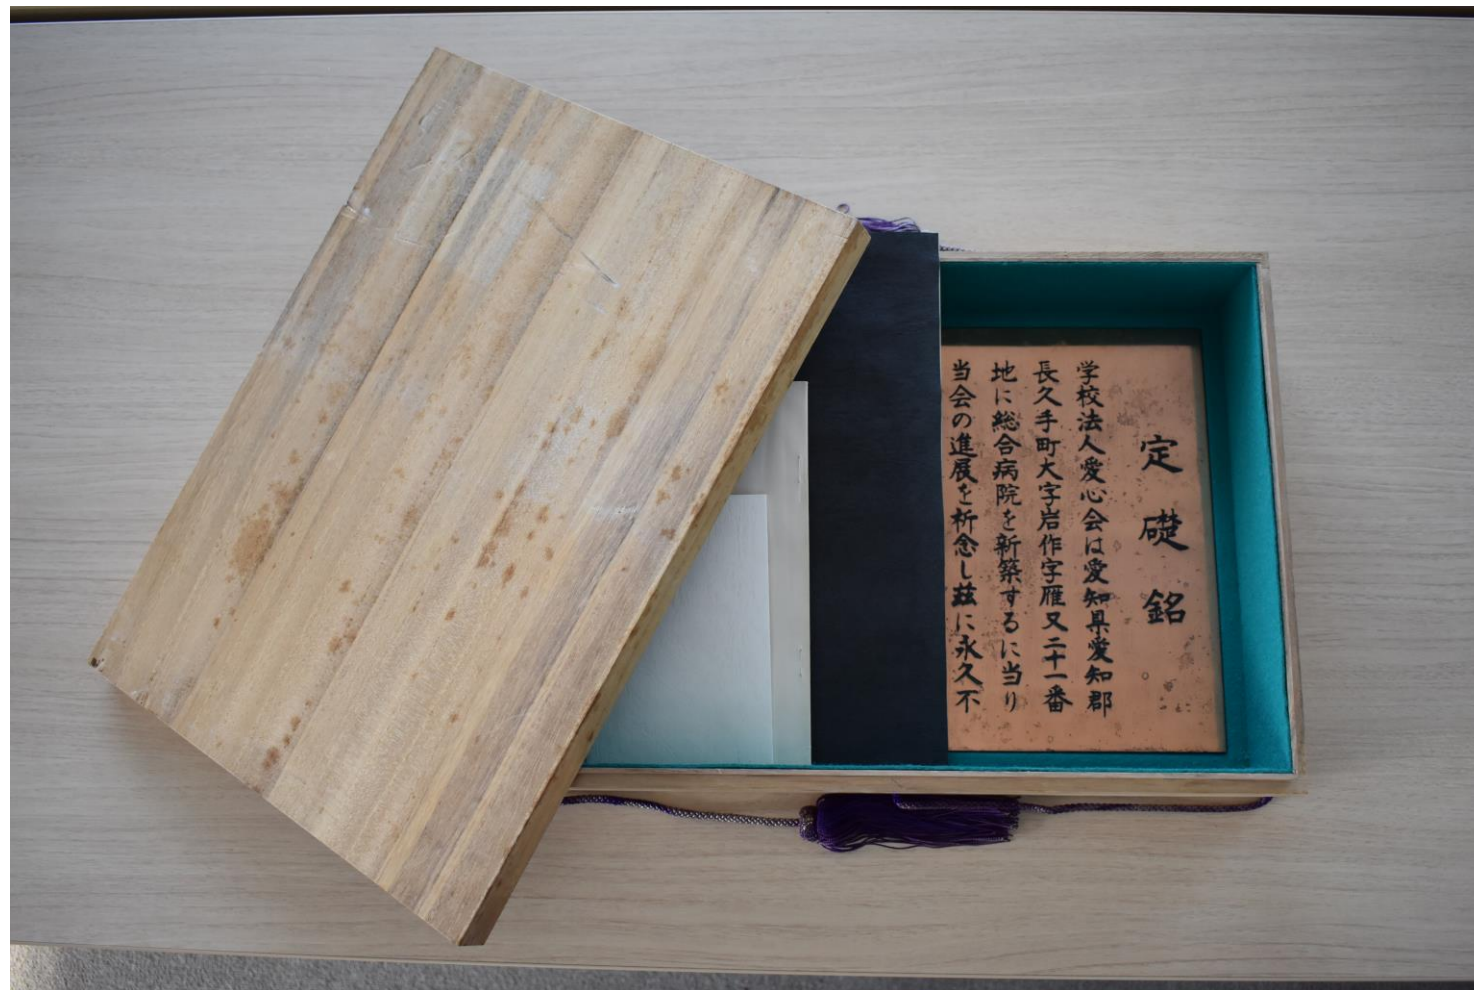 定礎銘
学校法人愛心会は愛知県愛知郡
長久手町大字岩作字雁又二十一番
地に総合病院を新築するに当り
当会の進展を祈念し茲に永久不